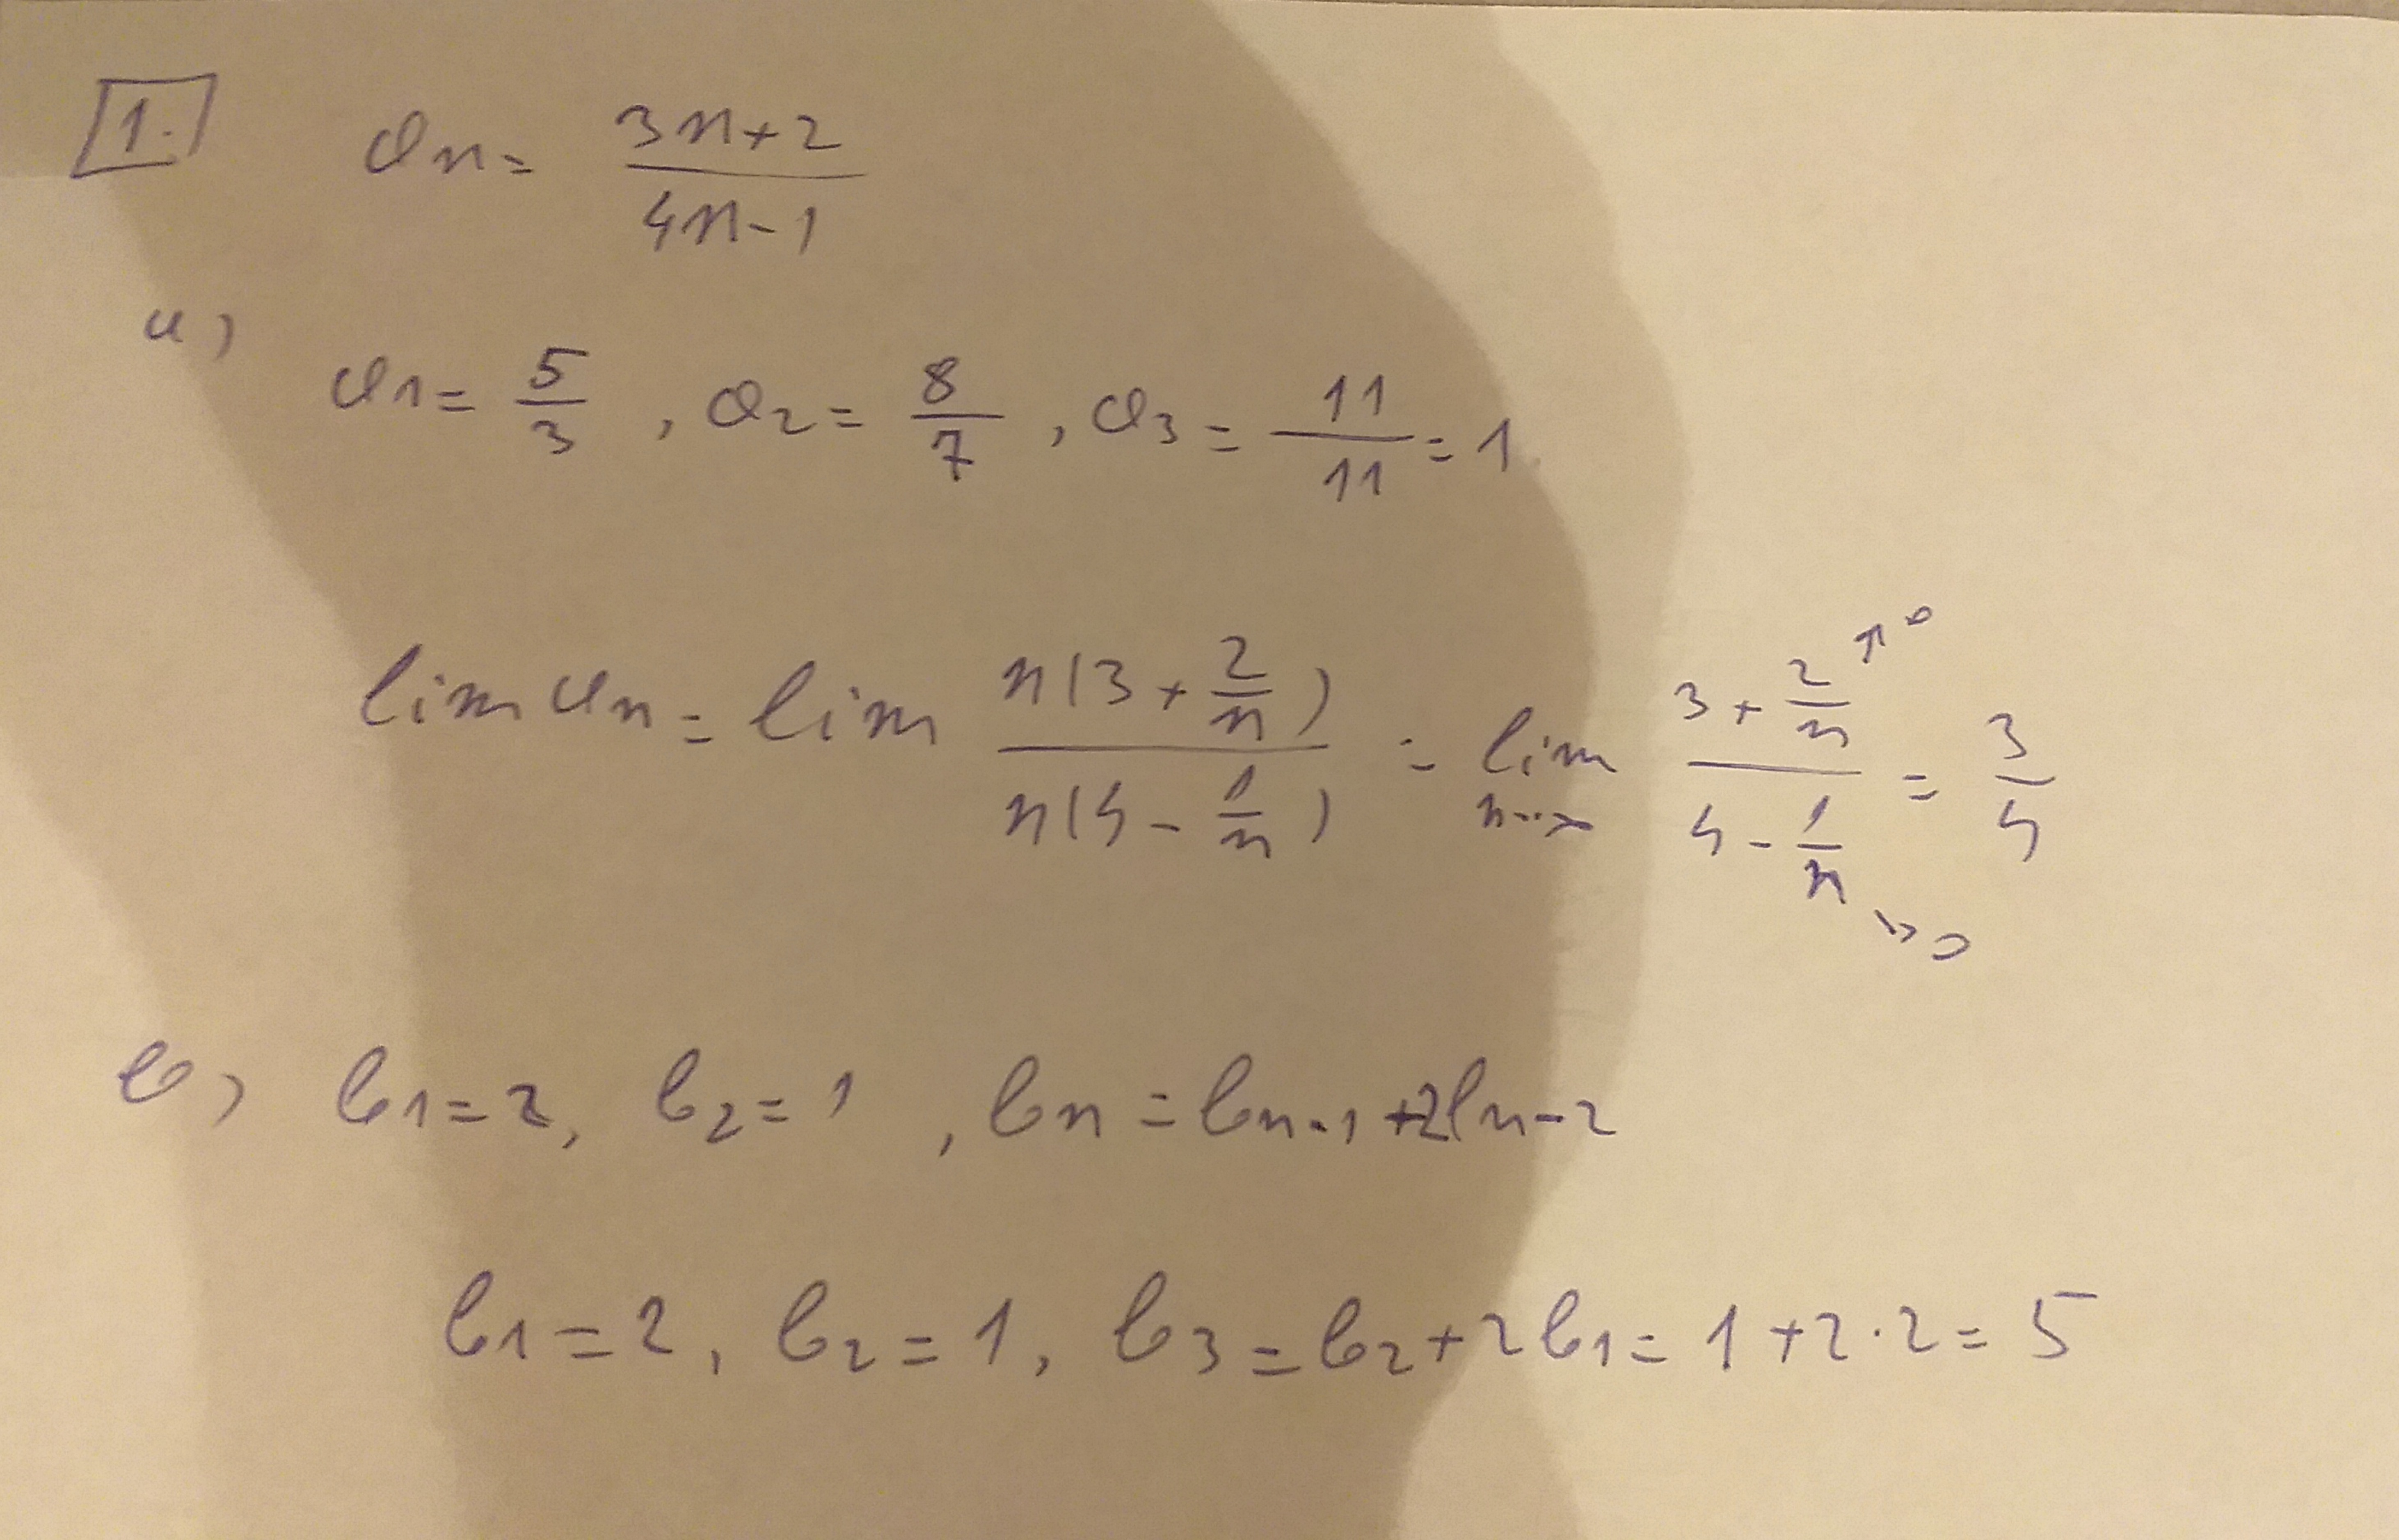 1. an = (3n+2)/(4n-1)
a)
a1 = 5/3 , a2 = 8/7 , a3 = 11/11 = 1
lim an = lim n(3+2/n)/n(4-1/n) = lim n→∞ (3+2/n →0)/(4-1/n →0) = 3/4
b) b1=2, b2=1 , bn = bn-1 +2bn-2
b1=2, b2=1, b3=b2+2b1=1+2·2=5